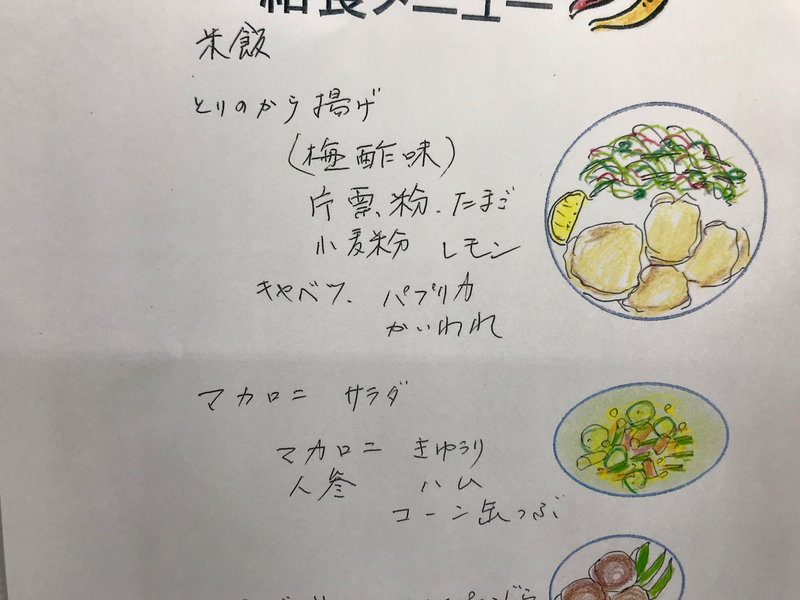 給食メニュー
米飯
とりのから揚げ
(梅酢味)
片栗粉、たまご
小麦粉 レモン
キャベツ、パプリカ
かいわれ
マカロニ サラダ
マカロニ きゅうり
人参 ハム
コーン缶つぶ